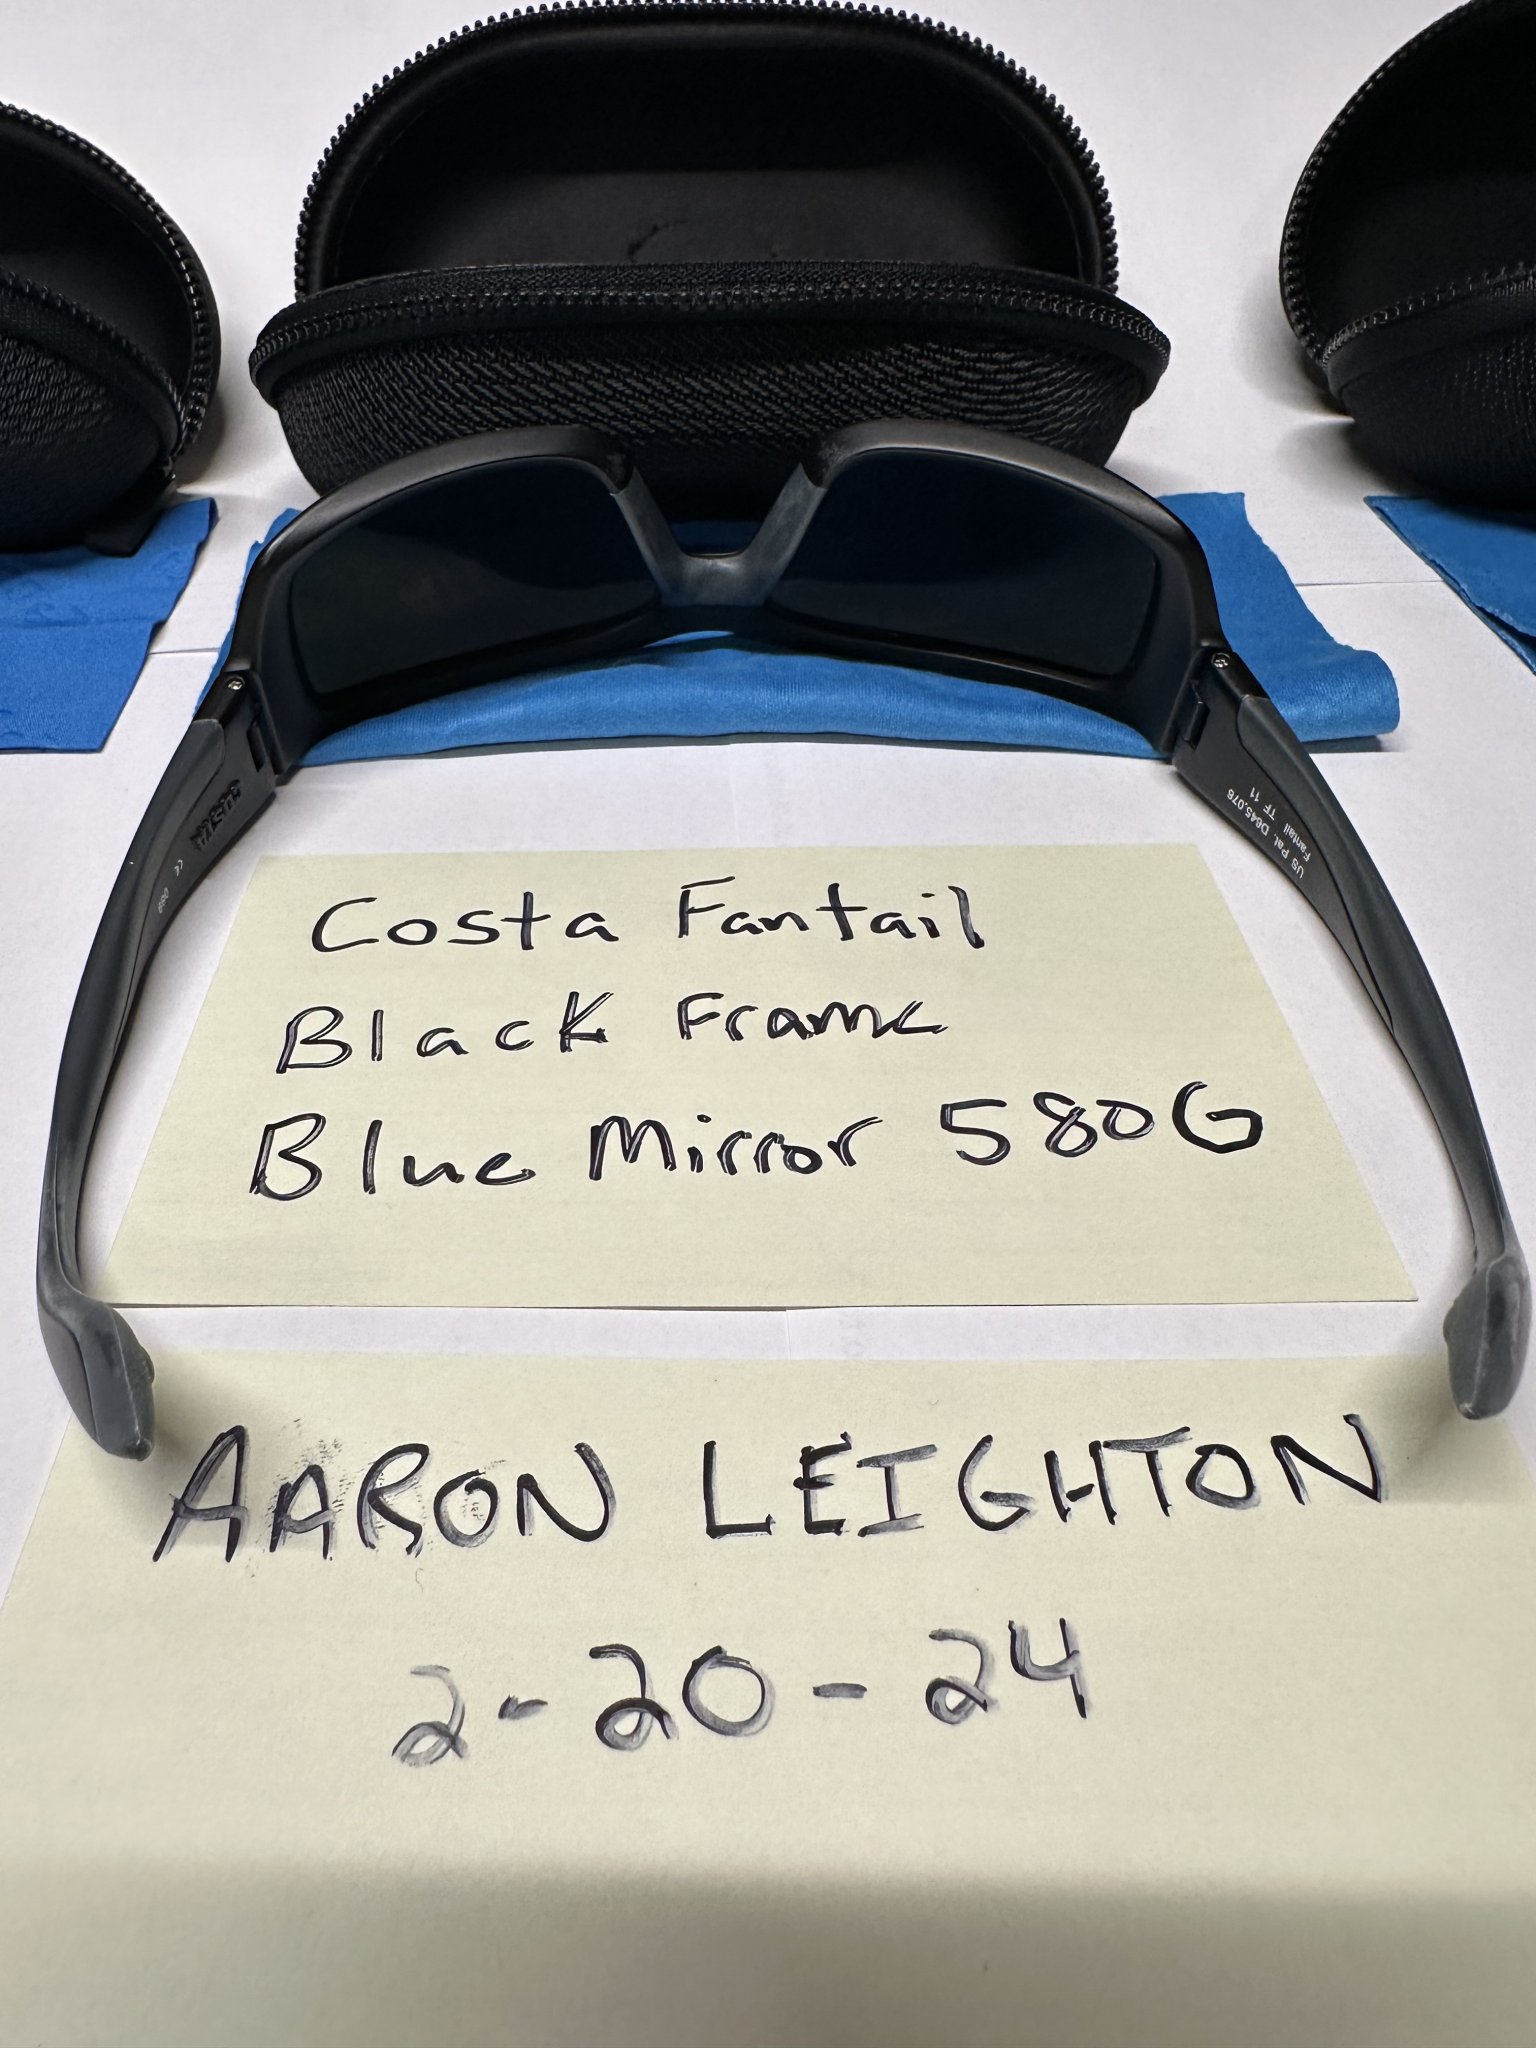 COSTA
CE 089
US Pat. D645,076
Fantail TF 11
Costa Fantail
Black Frame
Blue Mirror 580G
AARON LEIGHTON
2-20-24